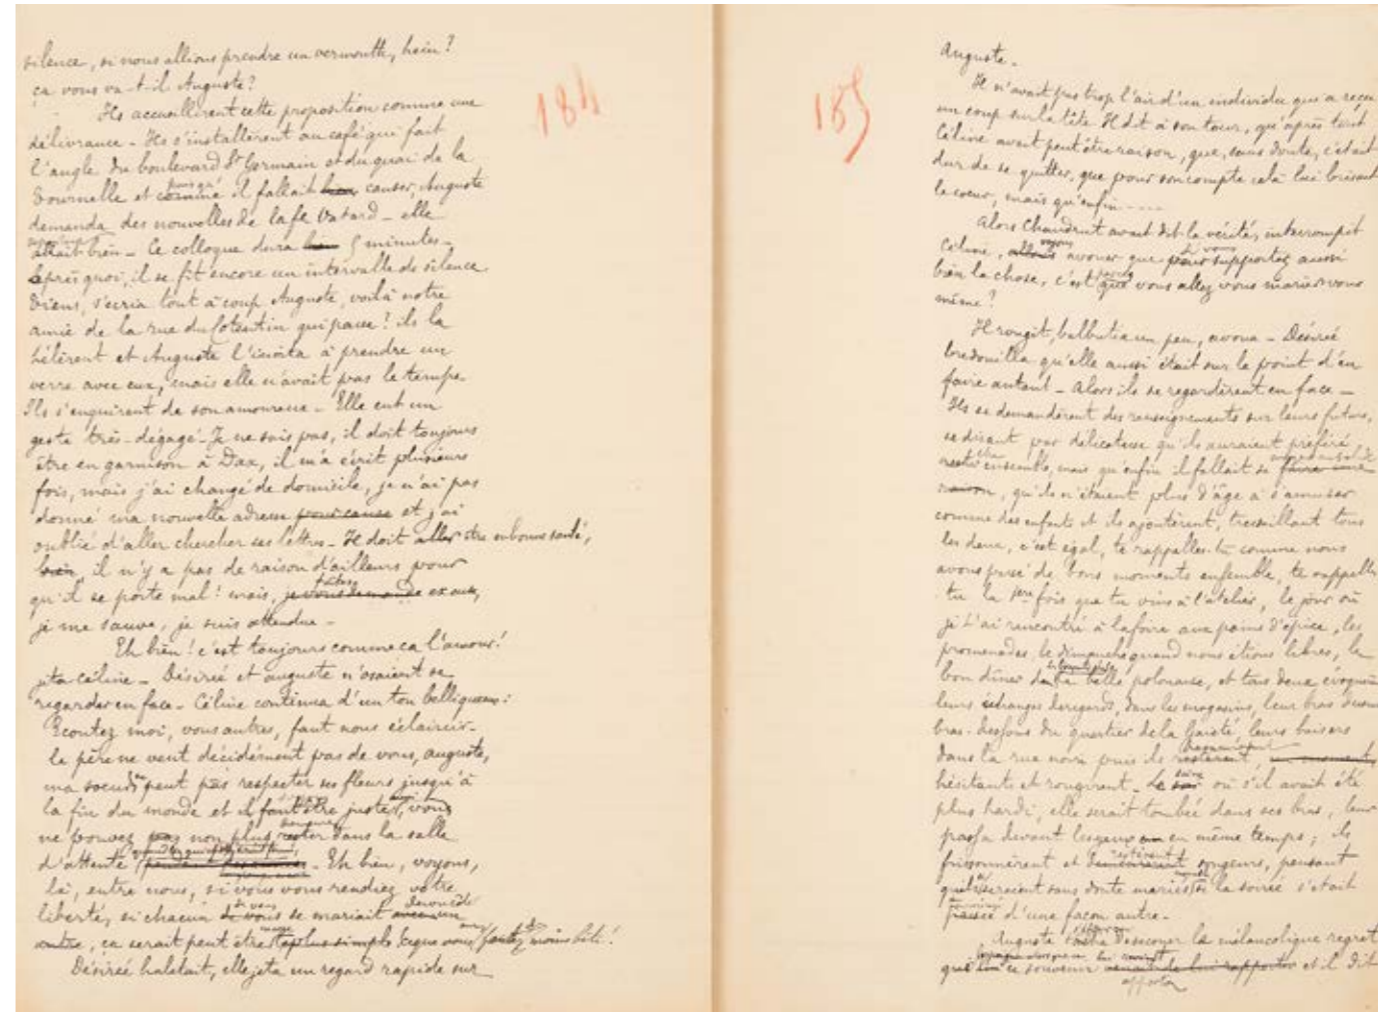 silence, si nous allions prendre un vermouth, hein?
ça vous va-t-il Auguste?
Ils accueillirent cette proposition comme une
délivrance – Ils s'installèrent au café qui fait
l'angle du boulevard St Germain et du quai de la
Tournelle et comme puisqu' il fallait bien causer, Auguste
demanda des nouvelles de la fe Vatard – elle
allait bien – Ce colloque dura 5 minutes –
Après quoi, il se fit encore un intervalle de silence
Tiens, s'écria tout à coup Auguste, voilà notre
amie de la rue du Cotentin qui passe! ils la
hélèrent et Auguste l'invita à prendre un
verre avec eux, mais elle n'avait pas le temps
Ils s'enquirent de son amoureux – Elle eut un
geste très-dégagé – Je ne sais pas, il doit toujours
être en garnison à Dax, il m'a écrit plusieurs
fois, mais j'ai changé de domicile, je n'ai pas
donné ma nouvelle adresse pour cause et j'ai
oublié d'aller chercher ses lettres – Il doit aller être en bonne santé,
bien, il n'y a pas de raison d'ailleurs pour
qu'il se porte mal! mais, je vous demande excuse,
je me sauve, je suis attendue –
Eh bien! c'est toujours comme ca l'amour!
jeta Céline – Désirée et auguste n'osaient se
regarder en face – Céline continua d'un ton belliqueux:
Ecoutez moi, vous autres, faut nous éclaircir –
le père ne veut décidément pas de vous, auguste,
ma soeur ne peut pas respecter ses fleurs jusqu'à
la fin du monde et il faut être juste, vous
ne pouvez pas non plus rester dans la salle
d'attente – Eh bien, voyons,
là, entre nous, si vous vous rendiez votre
liberté, si chacun de vous se mariait avec un
autre, ça serait peut être plus simple
Désirée haletait, elle jeta un regard rapide sur
184
185
Auguste –
Il n'avait pas trop l'air d'un individu qui a reçu
un coup sur la tête. Il dit à son tour, qu'après tout
Céline avait peut être raison, que, sans doute, c'était
dur de se quitter, que pour son compte cela lui brisait
le coeur, mais qu'enfin ----
Alors Chaudrut avait dit la vérité, interrompit
Céline, allons voyons avouez que pour si vous supportez aussi
bien la chose, c'est parce que vous allez vous marier vous
même?
Il rougit, balbutia un peu, avoua – Désirée
bredouilla qu'elle aussi était sur le point d'en
faire autant – Alors ils se regardèrent en face –
Ils se demandèrent des renseignements sur leurs futurs,
se disant par délicatesse qu'ils auraient préféré
rester ensemble, mais qu'enfin il fallait se faire une
raison, qu'ils n'étaient plus d'âge à s'amuser
comme des enfants et ils ajoutèrent, tressaillant tous
les deux, c'est égal, te rappelles-tu comme nous
avons passé de bons moments ensemble, te rappelles
tu la 1ère fois que tu vins à l'atelier, le jour où
je t'ai rencontré à la foire aux pains d'épice, les
promenades le dimanche quand nous étions libres, le
bon dîner la belle polonaise, et tous deux évoquaient
leurs échanges de regards, dans les magasins, leur bras dessus
bras-dessous du quartier de la Gaieté, leurs baisers
dans la rue noire puis ils restèrent un moment
hésitants et rougirent – Le soir soirée où s'il avait été
plus hardi, elle serait tombée dans ses bras, leur
passa devant les yeux en même temps; ils
frissonnèrent et demeurèrent restèrent songeurs, pensant
qu'ils seraient sans doute mariés si la soirée s'était
passée terminée d'une façon autre –
Auguste tâcha de secouer le mélancolique regret
que ce souvenir venait de lui rapporter et il dit
apporter